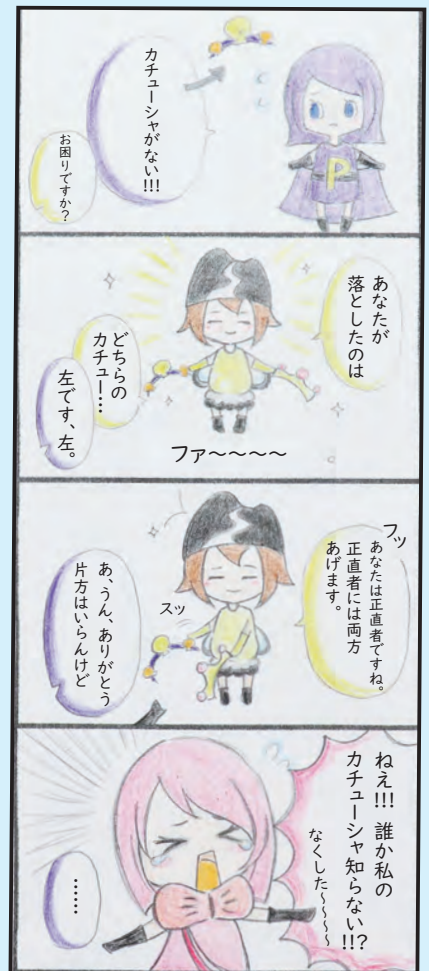 カチューシャがない!!!
お困りですか?
P
あなたが
落としたのは
どちらの
カチュー…
左です、左。
ファ〜〜〜〜
フッ
あなたは正直者ですね。
正直者には両方
あげます。
スッ
あ、うん、ありがとう
片方はいらんけど
ねえ!!! 誰か私の
カチューシャ知らない!!?
なくした〜〜〜〜
……